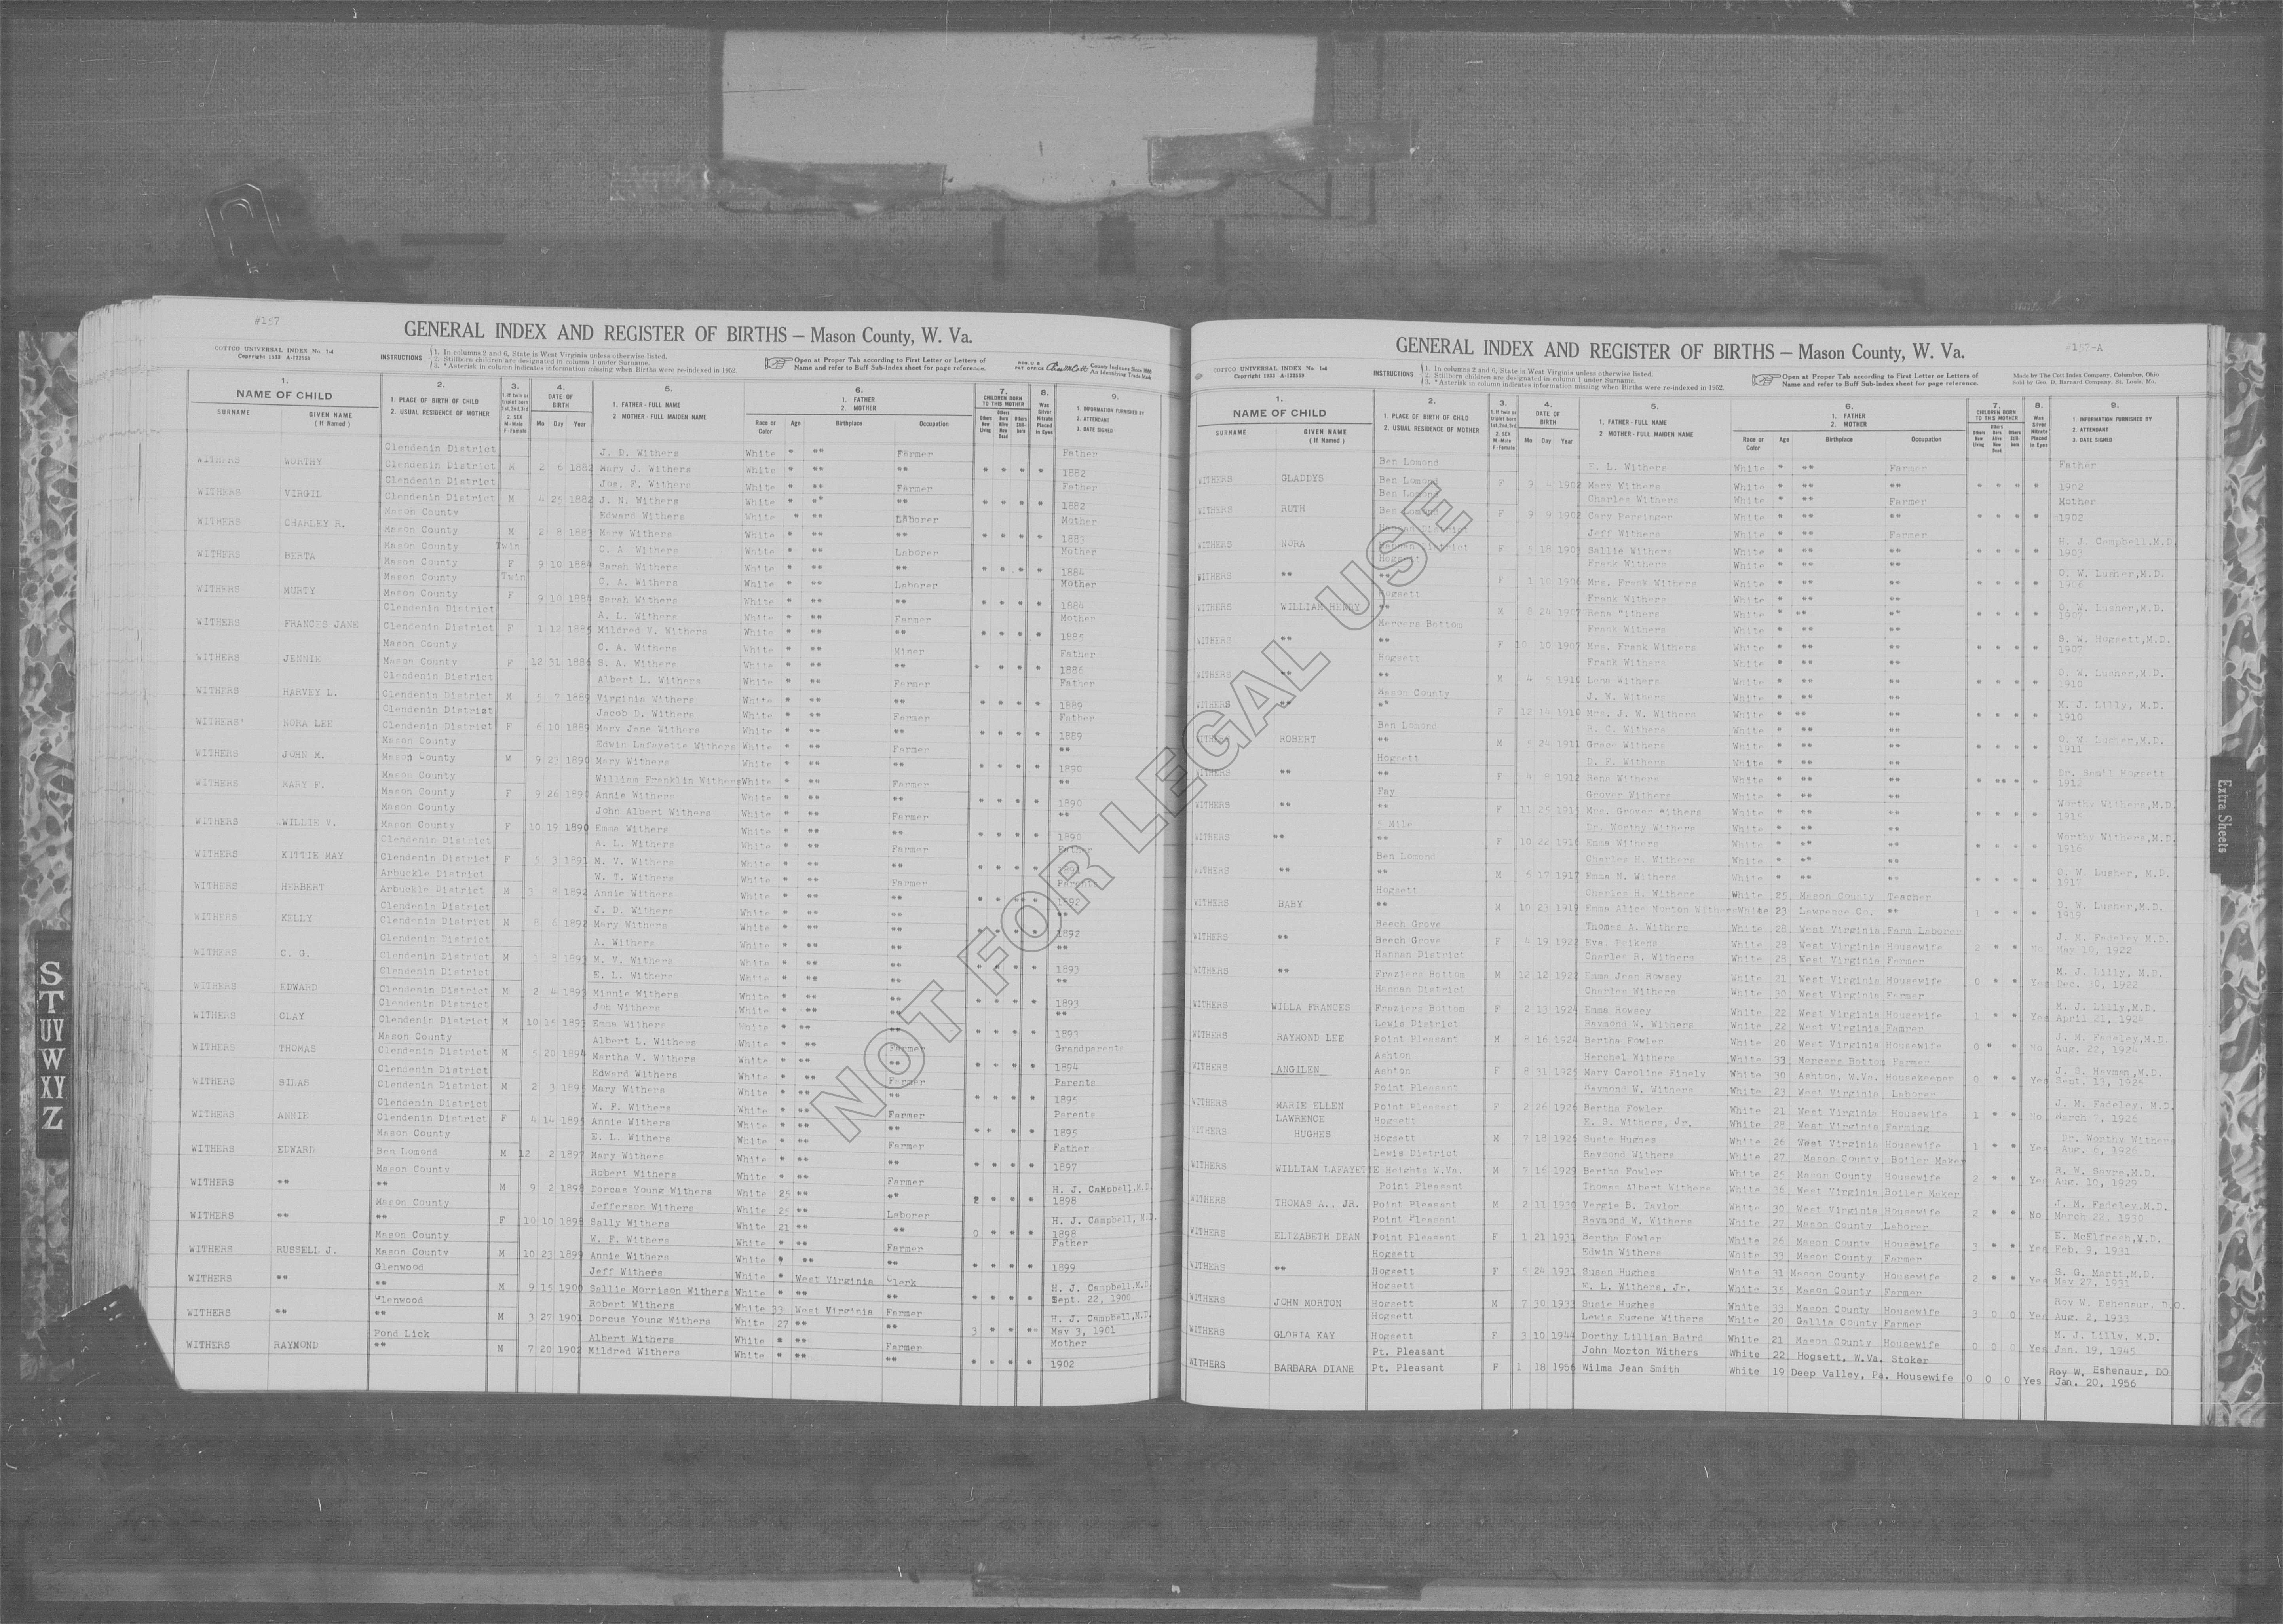 #157
GENERAL INDEX AND REGISTER OF BIRTHS — Mason County, W. Va.
COTTCO UNIVERSAL INDEX No. 1-4
Copyright 1933 A-122559
INSTRUCTIONS
1. In columns 2 and 6, State is West Virginia unless otherwise listed.
2. Stillborn children are designated in column 1 under Surname.
3. *Asterisk in column indicates information missing when Births were re-indexed in 1952.
Open at Proper Tab according to First Letter or Letters of
Name and refer to Buff Sub-Index sheet for page reference.
1. NAME OF CHILD SURNAME GIVEN NAME (If Named)
2. 1. PLACE OF BIRTH OF CHILD 2. USUAL RESIDENCE OF MOTHER
3. 2. SEX M-Male F-Female
4. DATE OF BIRTH Mo Day Year
5. 1. FATHER - FULL NAME 2. MOTHER - FULL MAIDEN NAME
6. 1. FATHER 2. MOTHER Race or Color Age Birthplace Occupation
7. CHILDREN BORN TO THIS MOTHER
8. Was Silver Nitrate Placed in Eyes
9. 1. INFORMATION FURNISHED BY 2. ATTENDANT 3. DATE SIGNED
Clendenin District J. D. Withers White * ** Farmer Father
WITHERS WORTHY Clendenin District M 2 6 1882 Mary J. Withers White * ** ** * * * * 1882
Clendenin District Jos. F. Withers White * ** Farmer Father
WITHERS VIRGIL Clendenin District M 4 25 1882 J. N. Withers White * ** ** * * * * 1882
Mason County Edward Withers White * ** Laborer Mother
WITHERS CHARLEY R. Mason County M 2 8 1883 Mary Withers White * ** ** * * * * 1883
Mason County Twin C. A. Withers White * ** Laborer Mother
WITHERS BERTA Mason County F 9 10 1884 Sarah Withers White * ** ** * * * * 1884
Mason County Twin C. A. Withers White * ** Laborer Mother
WITHERS MURTY Mason County F 9 10 1884 Sarah Withers White * ** ** * * * * 1884
Clendenin District A. L. Withers White * ** Farmer Mother
WITHERS FRANCES JANE Clendenin District F 1 12 1885 Mildred V. Withers White * ** ** * * * * 1885
Mason County C. A. Withers White * ** Miner Father
WITHERS JENNIE Mason County F 12 31 1886 S. A. Withers White * ** ** * * * * 1886
Clendenin District Albert L. Withers White * ** Farmer Father
WITHERS HARVEY L. Clendenin District M 5 7 1889 Virginia Withers White * ** ** * * * * 1889
Clendenin District Jacob D. Withers White * ** Farmer Father
WITHERS' RORA LEE Clendenin District F 6 10 1889 Mary Jane Withers White * ** ** * * * * 1889
Mason County Edwin Lafayette Withers White * ** Farmer **
WITHERS JOHN M. Mason County M 9 23 1890 Mary Withers White * ** ** * * * * 1890
Mason County William Franklin Withers White * ** Farmer **
WITHERS MARY F. Mason County F 9 26 1890 Annie Withers White * ** ** * * * * 1890
Mason County John Albert Withers White * ** Farmer **
WITHERS WILLIE V. Mason County F 10 19 1890 Emma Withers White * ** ** * * * * 1890
Clendenin District A. L. Withers White * ** Farmer Father
WITHERS KITTIE MAY Clendenin District F 5 3 1891 M. V. Withers White * ** ** * * * * 1891
Arbuckle District W. T. Withers White * ** Farmer Parents
WITHERS HERBERT Arbuckle District M 3 8 1892 Annie Withers White * ** ** * * ** * 1892
Clendenin District J. D. Withers White * ** **
WITHERS KELLY Clendenin District M 8 6 1892 Mary Withers White * ** * * * * 1892
Clendenin District A. Withers White * ** **
WITHERS C. G. Clendenin District M 3 8 1893 M. V. Withers White * ** * * * * 1893
Clendenin District E. L. Withers White * ** **
WITHERS EDWARD Clendenin District M 2 4 1893 Minnie Withers White * ** ** * * * * 1893
Clendenin District Joh Withers White * ** **
WITHERS CLAY Clendenin District M 10 15 1893 Emma Withers White * ** ** * * * * 1893
Mason County Albert L. Withers White * ** Farmer Grandparents
WITHERS THOMAS Clendenin District M 5 20 1894 Martha V. Withers White * ** ** * * * * 1894
Clendenin District Edward Withers White * ** Farmer Parents
WITHERS SILAS Clendenin District M 2 3 1895 Mary Withers White * ** ** * * * * 1895
Clendenin District W. F. Withers White * ** Farmer Parents
WITHERS ANNIE Clendenin District F 4 14 1895 Annie Withers White * ** ** * * * * 1895
Mason County E. L. Withers White * ** Farmer Father
WITHERS EDWARD Ben Lomond M 12 2 1897 Mary Withers White * ** ** * * * * 1897
Mason County Robert Withers White * ** Farmer H. J. Campbell,M.D.
WITHERS ** ** M 9 2 1898 Dorcas Young Withers White 25 ** ** 2 * * * 1898
Mason County Jefferson Withers White 25 ** Laborer H. J. Campbell, M.D.
WITHERS ** ** F 10 10 1898 Sally Withers White 21 ** ** 0 * * * 1898
Mason County W. F. Withers White * ** Farmer Father
WITHERS RUSSELL J. Mason County M 10 23 1899 Annie Withers White * ** ** * * * * 1899
Glenwood Jeff Withers White * West Virginia Clerk H. J. Campbell,M.D.
WITHERS ** ** M 9 15 1900 Sallie Morrison Withers White * ** ** * * * * Sept. 22, 1900
Glenwood Robert Withers White 33 West Virginia Farmer H. J. Campbell,M.D.
WITHERS ** ** M 3 27 1901 Dorcus Young Withers White 27 ** ** 3 * * ** May 3, 1901
Pond Lick Albert Withers White * ** Farmer Mother
WITHERS RAYMOND ** M 7 20 1902 Mildred Withers White * ** ** * * * * 1902
#157-A
GENERAL INDEX AND REGISTER OF BIRTHS — Mason County, W. Va.
COTTCO UNIVERSAL INDEX No. 1-4
Copyright 1933 A-122559
INSTRUCTIONS
1. In columns 2 and 6, State is West Virginia unless otherwise listed.
2. Stillborn children are designated in column 1 under Surname.
3. *Asterisk in column indicates information missing when Births were re-indexed in 1952.
Open at Proper Tab according to First Letter or Letters of
Name and refer to Buff Sub-Index sheet for page reference.
Made by The Cott Index Company, Columbus, Ohio
Sold by Geo. D. Barnard Company, St. Louis, Mo.
1. NAME OF CHILD SURNAME GIVEN NAME (If Named)
2. 1. PLACE OF BIRTH OF CHILD 2. USUAL RESIDENCE OF MOTHER
3. 2. SEX M-Male F-Female
4. DATE OF BIRTH Mo Day Year
5. 1. FATHER - FULL NAME 2. MOTHER - FULL MAIDEN NAME
6. 1. FATHER 2. MOTHER Race or Color Age Birthplace Occupation
7. CHILDREN BORN TO THIS MOTHER
8. Was Silver Nitrate Placed in Eyes
9. 1. INFORMATION FURNISHED BY 2. ATTENDANT 3. DATE SIGNED
Ben Lomond E. L. Withers White * ** Farmer Father
WITHERS GLADDYS Ben Lomond F 9 4 1902 Mary Withers White * ** ** * * * * 1902
Ben Lomond Charles Withers White * ** Farmer Mother
WITHERS RUTH Ben Lomond F 9 9 1902 Cary Persinger White * ** ** * * * * 1902
Hannan District Jeff Withers White * ** Farmer H. J. Campbell,M.D.
WITHERS NORA Hannan District F 5 18 1903 Sallie Withers White * ** ** * * * * 1903
Hogsett Frank Withers White * ** O. W. Lusher,M.D.
WITHERS ** ** F 1 10 1906 Mrs. Frank Withers White * ** ** * * * * 1906
Hogsett Frank Withers White * ** ** O. W. Lusher,M.D.
WITHERS WILLIAM HENRY ** M 8 24 1907 Rena Withers White * ** ** * * * * 1907
Mercers Bottom Frank Withers White * ** S. W. Hogsett,M.D.
WITHERS ** ** F 10 10 1907 Mrs. Frank Withers White * ** ** * * * * 1907
Hogsett Frank Withers White * ** ** O. W. Lusher,M.D.
WITHERS ** ** M 4 5 1910 Lena Withers White * ** ** * * * * 1910
Mason County J. W. Withers White * ** ** M. J. Lilly, M.D.
WITHERS ** ** F 12 14 1910 Mrs. J. W. Withers White * ** ** * * * * 1910
Ben Lomond H. C. Withers White * ** ** O. W. Lusher,M.D.
WITHERS ROBERT ** M 5 24 1911 Grace Withers White * ** ** * * * * 1911
Hogsett D. F. Withers White * ** ** Dr. Sam'l Hogsett
WITHERS ** ** F 4 8 1912 Rena Withers White * ** ** * ** * * 1912
Fay Grover Withers White * ** ** Worthy Withers,M.D.
WITHERS ** ** F 11 25 1915 Mrs. Grover Withers White * ** ** * * * * 1915
5 Mile Dr. Worthy Withers White * ** ** Worthy Withers,M.D.
WITHERS ** ** F 10 22 1916 Emma Withers White * ** ** * * * * 1916
Ben Lomond Charles H. Withers White * ** ** O. W. Lusher, M.D.
WITHERS ** ** M 6 17 1917 Emma N. Withers White * ** ** * * * * 1917
Hogsett Charles H. Withers White 25 Mason County Teacher O. W. Lusher,M.D.
WITHERS BABY ** M 10 23 1919 Emma Alice Norton Withers White 23 Lawrence Co. ** 1 * * * 1919
Beech Grove Thomas A. Withers White 28 West Virginia Farm Laborer J. M. Fadeley M.D.
WITHERS ** Beech Grove F 4 19 1922 Eva. Peikens White 28 West Virginia Housewife 2 * * No May 10, 1922
Hannan District Charles R. Withers White 28 West Virginia Farmer M. J. Lilly, M.D.
WITHERS ** Fraziers Bottom M 12 12 1922 Emma Jean Rowsey White 21 West Virginia Housewife 0 * * Yes Dec. 30, 1922
Hannan District Charles Withers White 30 West Virginia Farmer M. J. Lilly,M.D.
WITHERS WILLA FRANCES Fraziers Bottom F 2 13 1924 Emma Rowsey White 22 West Virginia Housewife 1 * * Yes April 21, 1924
Lewis District Raymond W. Withers White 22 West Virginia Famrer J. M. Fadeley,M.D.
WITHERS RAYMOND LEE Point Pleasant M 8 16 1924 Bertha Fowler White 20 West Virginia Housewife 0 * * No Aug. 22, 1924
Ashton Herchel Withers White 33 Mercers Bottom Farmer J. S. Hayman,M.D.
WITHERS ANGILEN Ashton F 8 31 1925 Mary Caroline Finely White 30 Ashton, W.Va. Housekeeper 0 * * Yes Sept. 13, 1925
Point Pleasant Raymond W. Withers White 23 West Virginia Laborer J. M. Fadeley, M.D.
WITHERS MARIE ELLEN Point Pleasant F 2 26 1926 Bertha Fowler White 21 West Virginia Housewife 1 * * No March 2, 1926
LAWRENCE Hogsett E. S. Withers, Jr. White 28 West Virginia Farming Dr. Worthy Withers
WITHERS HUGHES Hogsett M 7 18 1926 Susie Hughes White 26 West Virginia Housewife 1 * * Yes Aug. 6, 1926
Lewis District Raymond Withers White 27 Mason County Boiler Maker R. W. Sayre,M.D.
WITHERS WILLIAM LAFAYETTE Heights W.Va. M 7 16 1929 Bertha Fowler White 25 Mason County Housewife 2 * * Yes Aug. 10, 1929
Point Pleasant Thomas Albert Withers White 36 West Virginia Boiler Maker J. M. Fadeley,M.D.
WITHERS THOMAS A., JR. Point Pleasant M 2 11 1930 Vergie B. Taylor White 30 West Virginia Housewife 2 * * No March 22, 1930
Point Pleasant Raymond W. Withers White 27 Mason County Laborer E. McElfresh,M.D.
WITHERS ELIZABETH DEAN Point Pleasant F 1 21 1931 Bertha Fowler White 26 Mason County Housewife 3 * * Yes Feb. 9, 1931
Hogsett Edwin Withers White 33 Mason County Farmer S. G. Marti,M.D.
WITHERS ** Hogsett F 5 24 1931 Susan Hughes White 31 Mason County Housewife 2 * * Yes May 27, 1931
Hogsett E. L. Withers, Jr. White 35 Mason County Farmer Roy W. Eshenaur, D.O.
WITHERS JOHN MORTON Hogsett M 7 30 1933 Susie Hughes White 33 Mason County Housewife 3 0 0 Yes Aug. 2, 1933
Hogsett Lewis Eugene Withers White 20 Gallia County Farmer M. J. Lilly, M.D.
WITHERS GLORIA KAY Hogsett F 3 10 1944 Dorthy Lillian Baird White 21 Mason County Housewife 0 0 0 Yes Jan. 19, 1945
Pt. Pleasant John Morton Withers White 22 Hogsett, W.Va. Stoker Roy W. Eshenaur, DO
WITHERS BARBARA DIANE Pt. Pleasant F 1 18 1956 Wilma Jean Smith White 19 Deep Valley, Pa. Housewife 0 0 0 Yes Jan. 20, 1956
NOT FOR LEGAL USE
S
T
UV
W
XY
Z
Extra Sheets